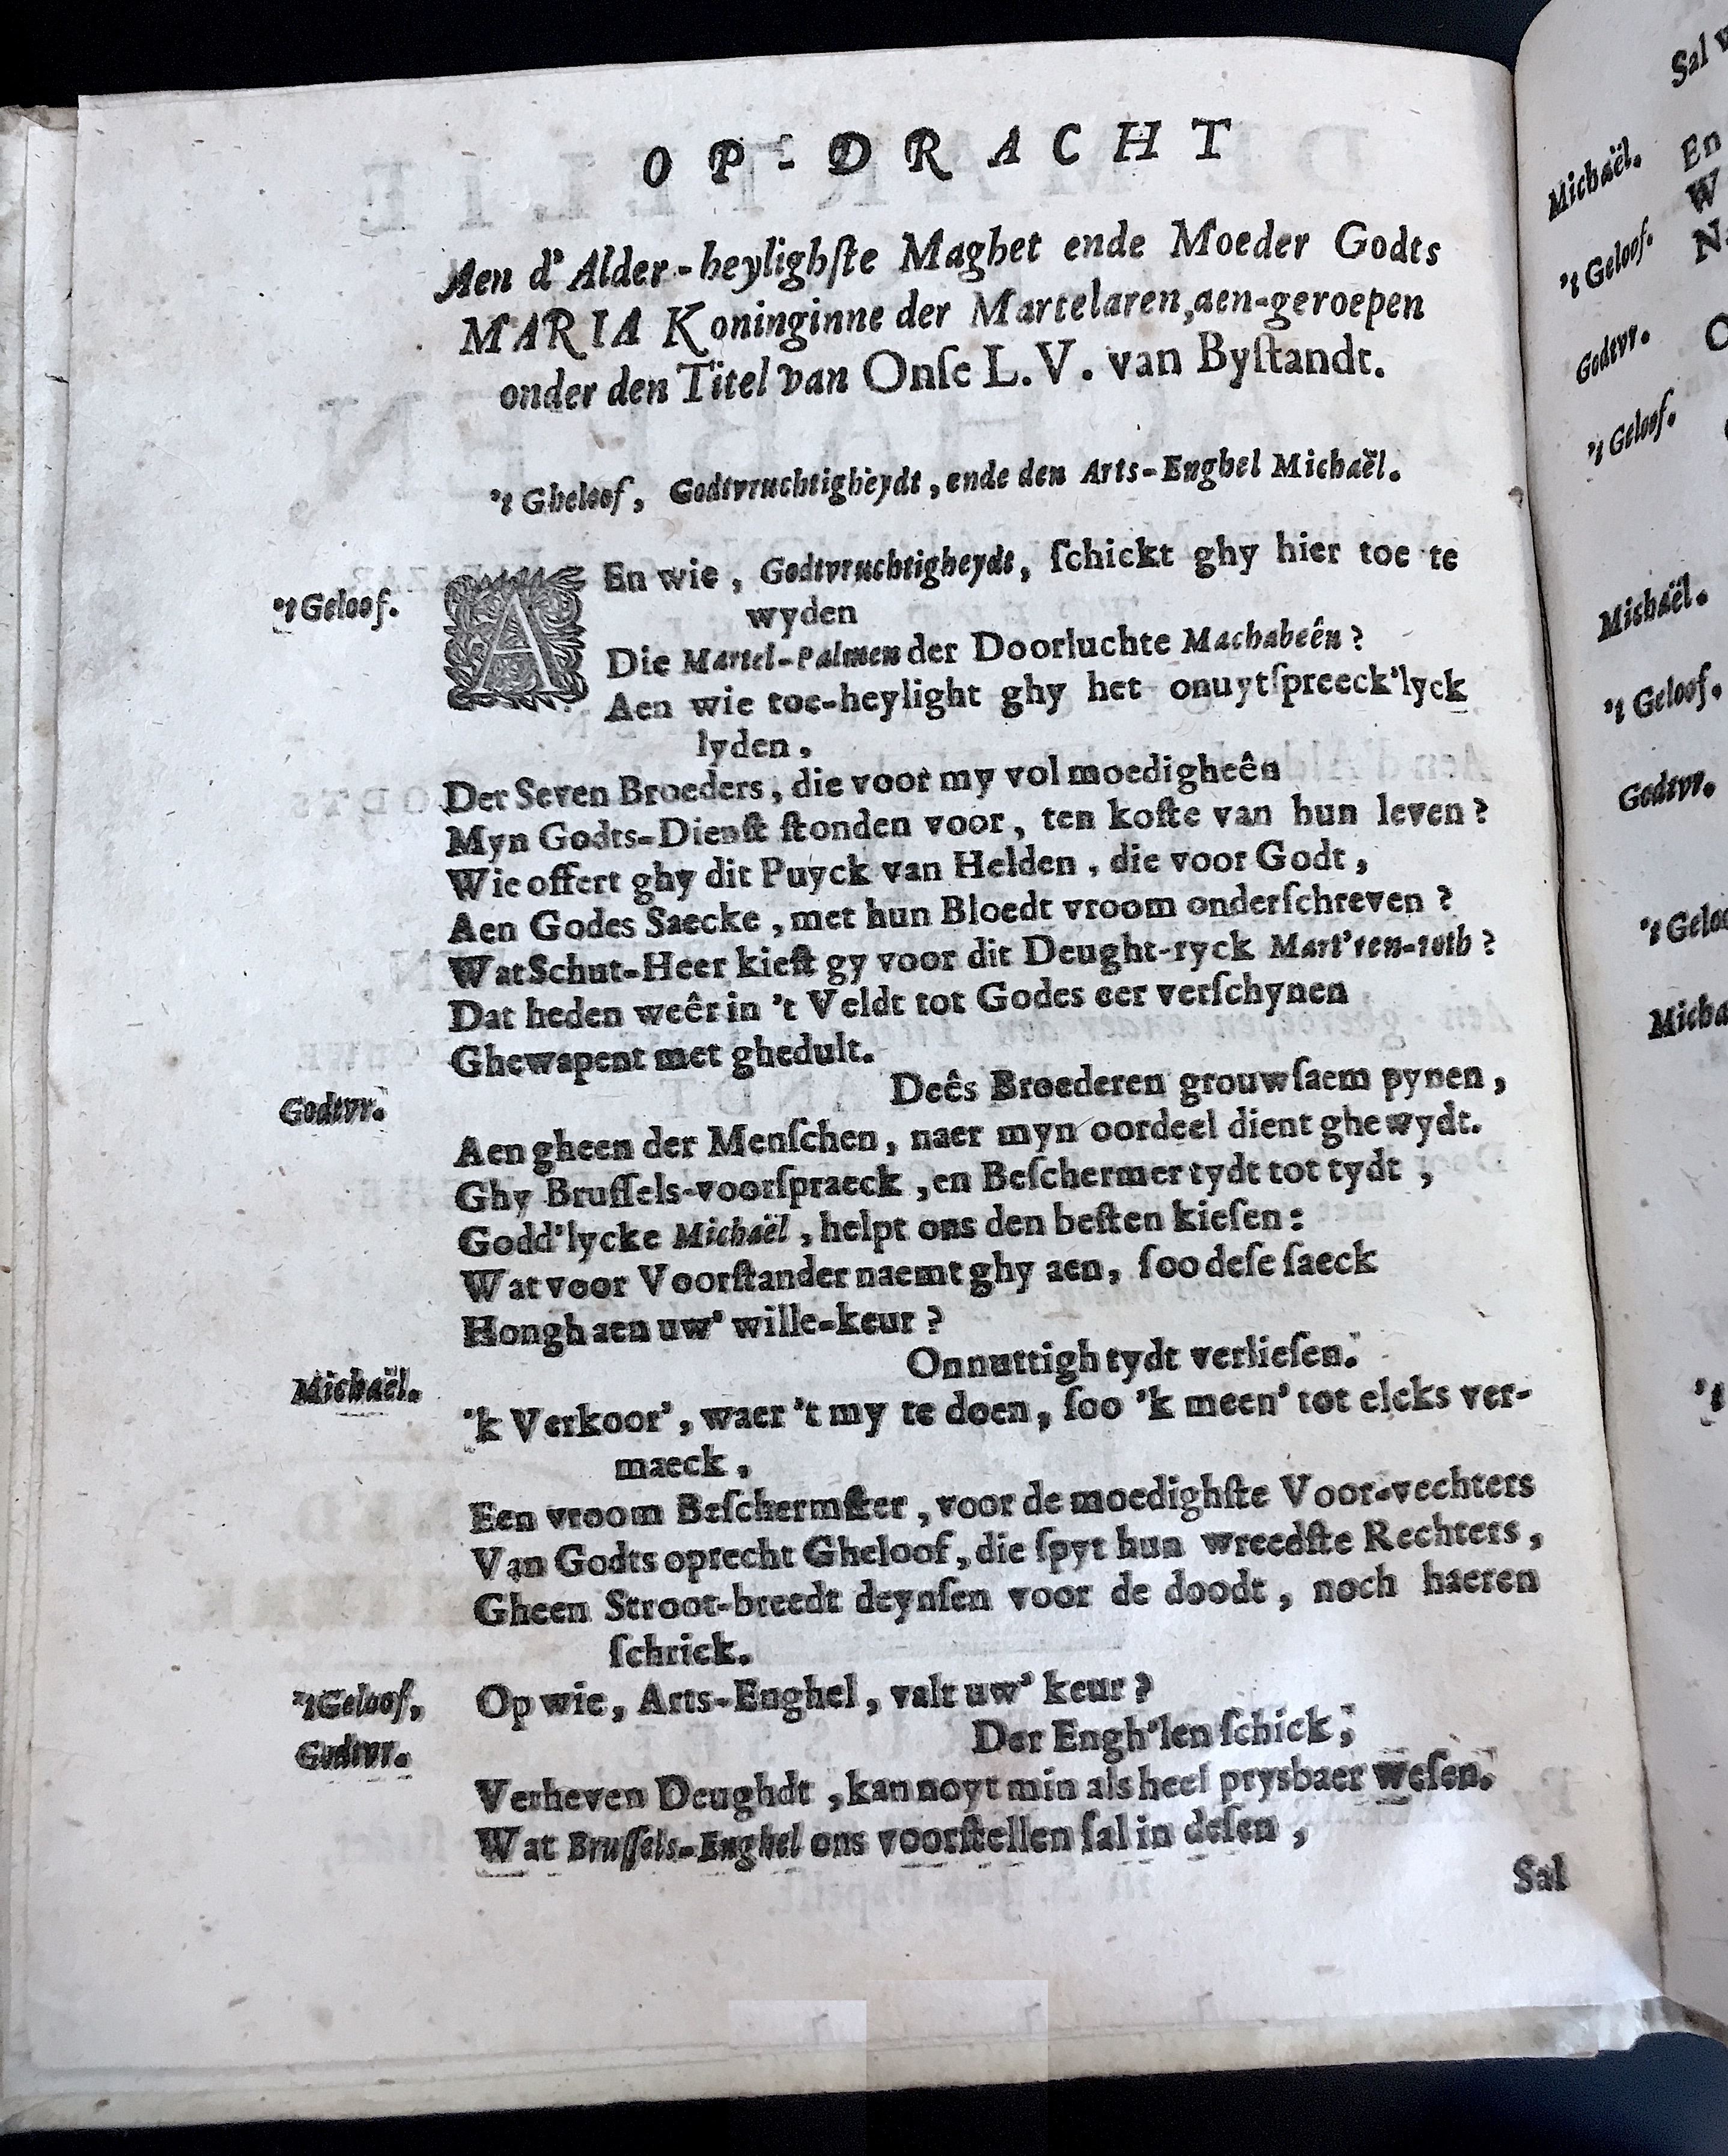 OP-DRACHT
Aen d' Alder-heylighſte Maghet ende Moeder Godts
MARIA Koninginne der Martelaren, aen-geroepen
onder den Titel van Onſe L. V. van Byſtandt.
't Gheloof, Godtvruchtigheydt, ende den Arts-Enghel Michaël.
't Geloof. AEn wie, Godtvruchtigheydt, ſchickt ghy hier toe te
wyden
Die Martel-Palmen der Doorluchte Machabeên?
Aen wie toe-heylight ghy het onuytſpreeck'lyck
lyden,
Der Seven Broeders, die voor my vol moedigheên
Myn Godts-Dienſt ſtonden voor, ten koſte van hun leven?
Wie offert ghy dit Puyck van Helden, die voor Godt,
Aen Godes Saecke, met hun Bloedt vroom onderſchreven?
Wat Schut-Heer kieſt gy voor dit Deught-ryck Mart'ren-roth?
Dat heden weêr in 't Veldt tot Godes eer verſchynen
Ghewapent met ghedult.
Godtvr. Deês Broederen grouwſaem pynen,
Aen gheen der Menſchen, naer myn oordeel dient ghewydt.
Ghy Bruſſels-voorſpraeck, en Beſchermer tydt tot tydt,
Godd'lycke Michaël, helpt ons den beſten kieſen:
Wat voor Voorſtander naemt ghy aen, ſoo deſe ſaeck
Hongh aen uw' wille-keur?
Michaël. Onnuttigh tydt verlieſen.
'k Verkoor', waer 't my te doen, ſoo 'k meen' tot elcks ver-
maeck,
Een vroom Beſchermſter, voor de moedighſte Voor-vechters
Van Godts oprecht Gheloof, die ſpyt hun wreedſte Rechters,
Gheen Stroot-breedt deynſen voor de doodt, noch haeren
ſchrick.
't Geloof, Op wie, Arts-Enghel, valt uw' keur?
Godtvr. Der Engh'len ſchick,
Verheven Deughdt, kan noyt min als heel prysbaer weſen.
Wat Bruſſels-Enghel ons voorſtellen ſal in deſen,
Sal
Sal
Michaël. En
W
't Geloof.
Godtvr.
't Geloof.
Michaël.
't Geloof.
Godtvr.